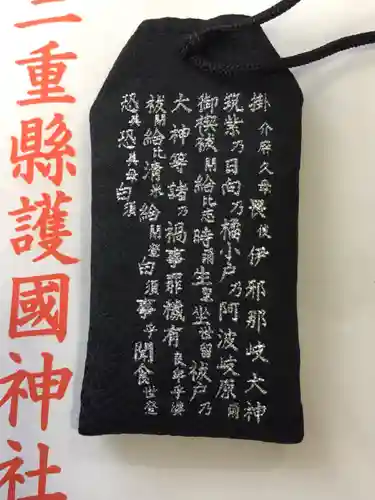 掛介麻久母畏伎伊邪那岐大神
筑紫乃日向乃橘小戸乃阿波岐原爾
御禊祓閉給比志時爾生里坐世留祓戸乃
大神等諸乃禍事罪穢有良牟乎婆
祓閉給比清米給閉登白須事乎聞食世登
恐美恐美母白須
三重縣護國神社